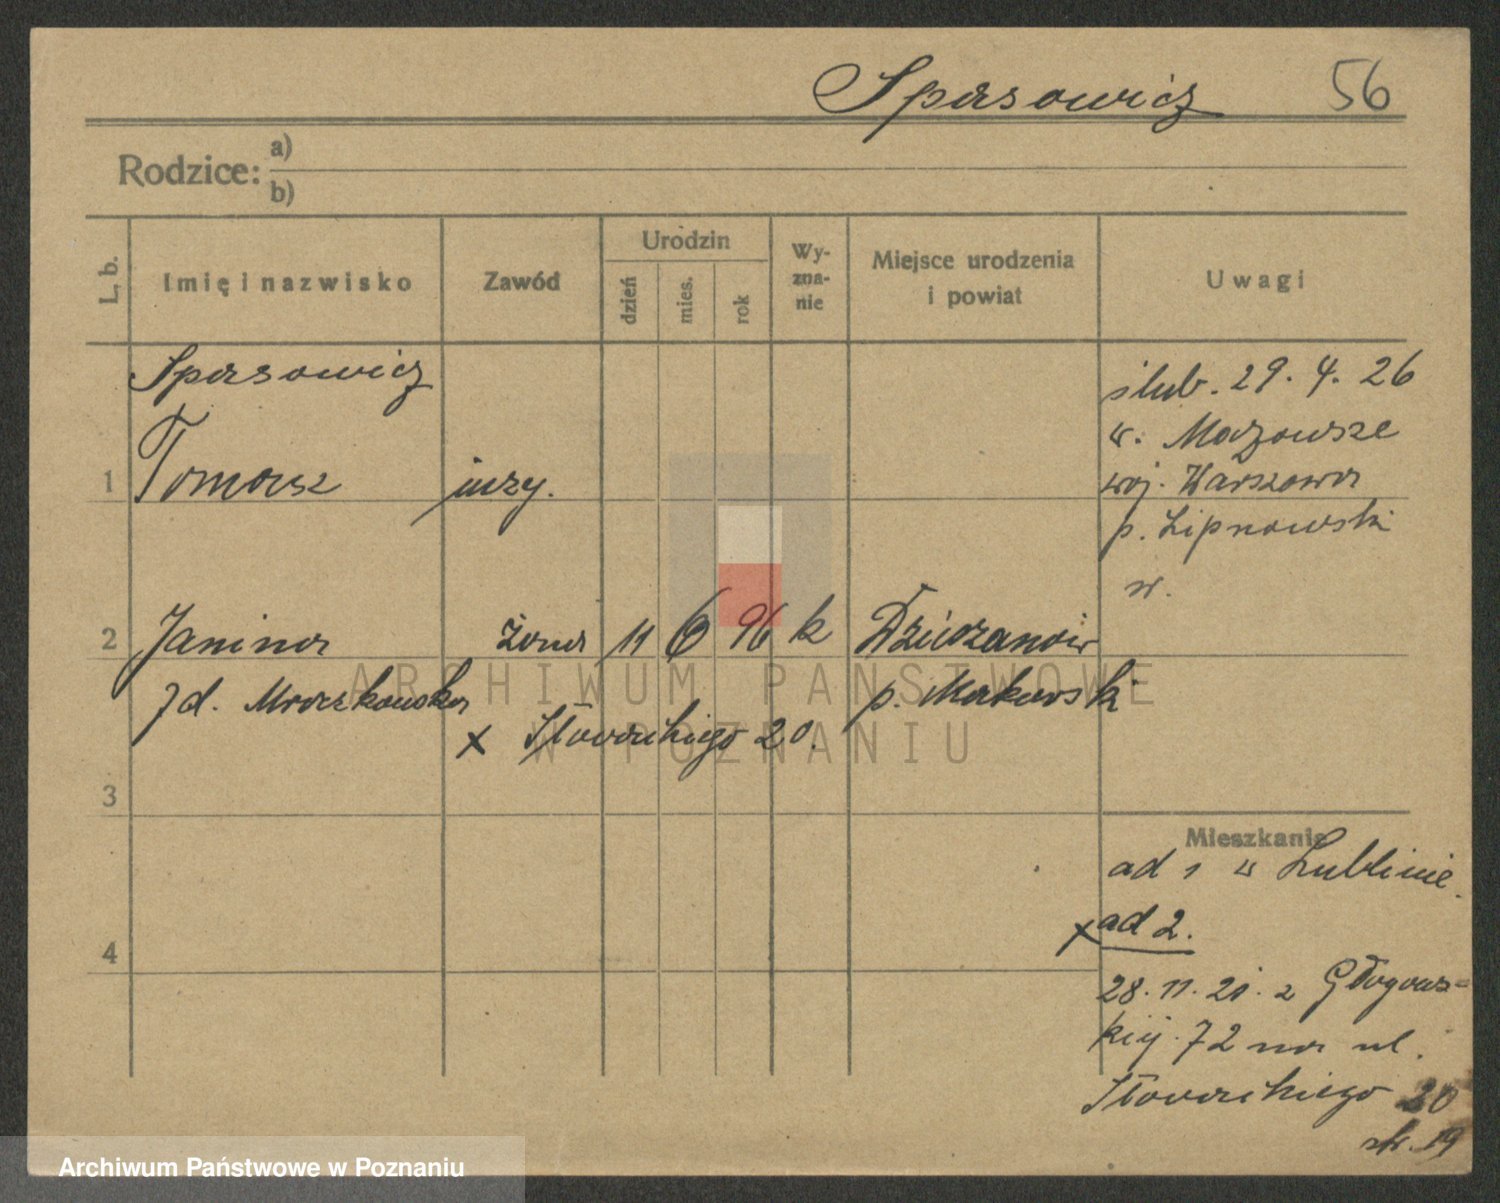 Spasowicz 56
Rodzice: a)
b)
L. b. Imię i nazwisko Zawód Urodzin dzień mies. rok Wy-zna-nie Miejsce urodzenia i powiat Uwagi
Spasowicz
ślub. 29. 4. 26
w. Mazowsze
1 Tomasz inży. woj. Warszawa
p. Lipnowski
w.
2 Janina żona 11 6 96 k Dziłczanów
zd. Mroczkowska p. Makowski
x Słowackiego 20.
3
Mieszkanie
ad 1 w Lublinie.
x ad 2.
4
28. 11. 21. z Głogows=
kiej 72 na ul.
Słowackiego 20
str. 19
ARCHIWUM PAŃSTWOWE
W POZNANIU
Archiwum Państwowe w Poznaniu